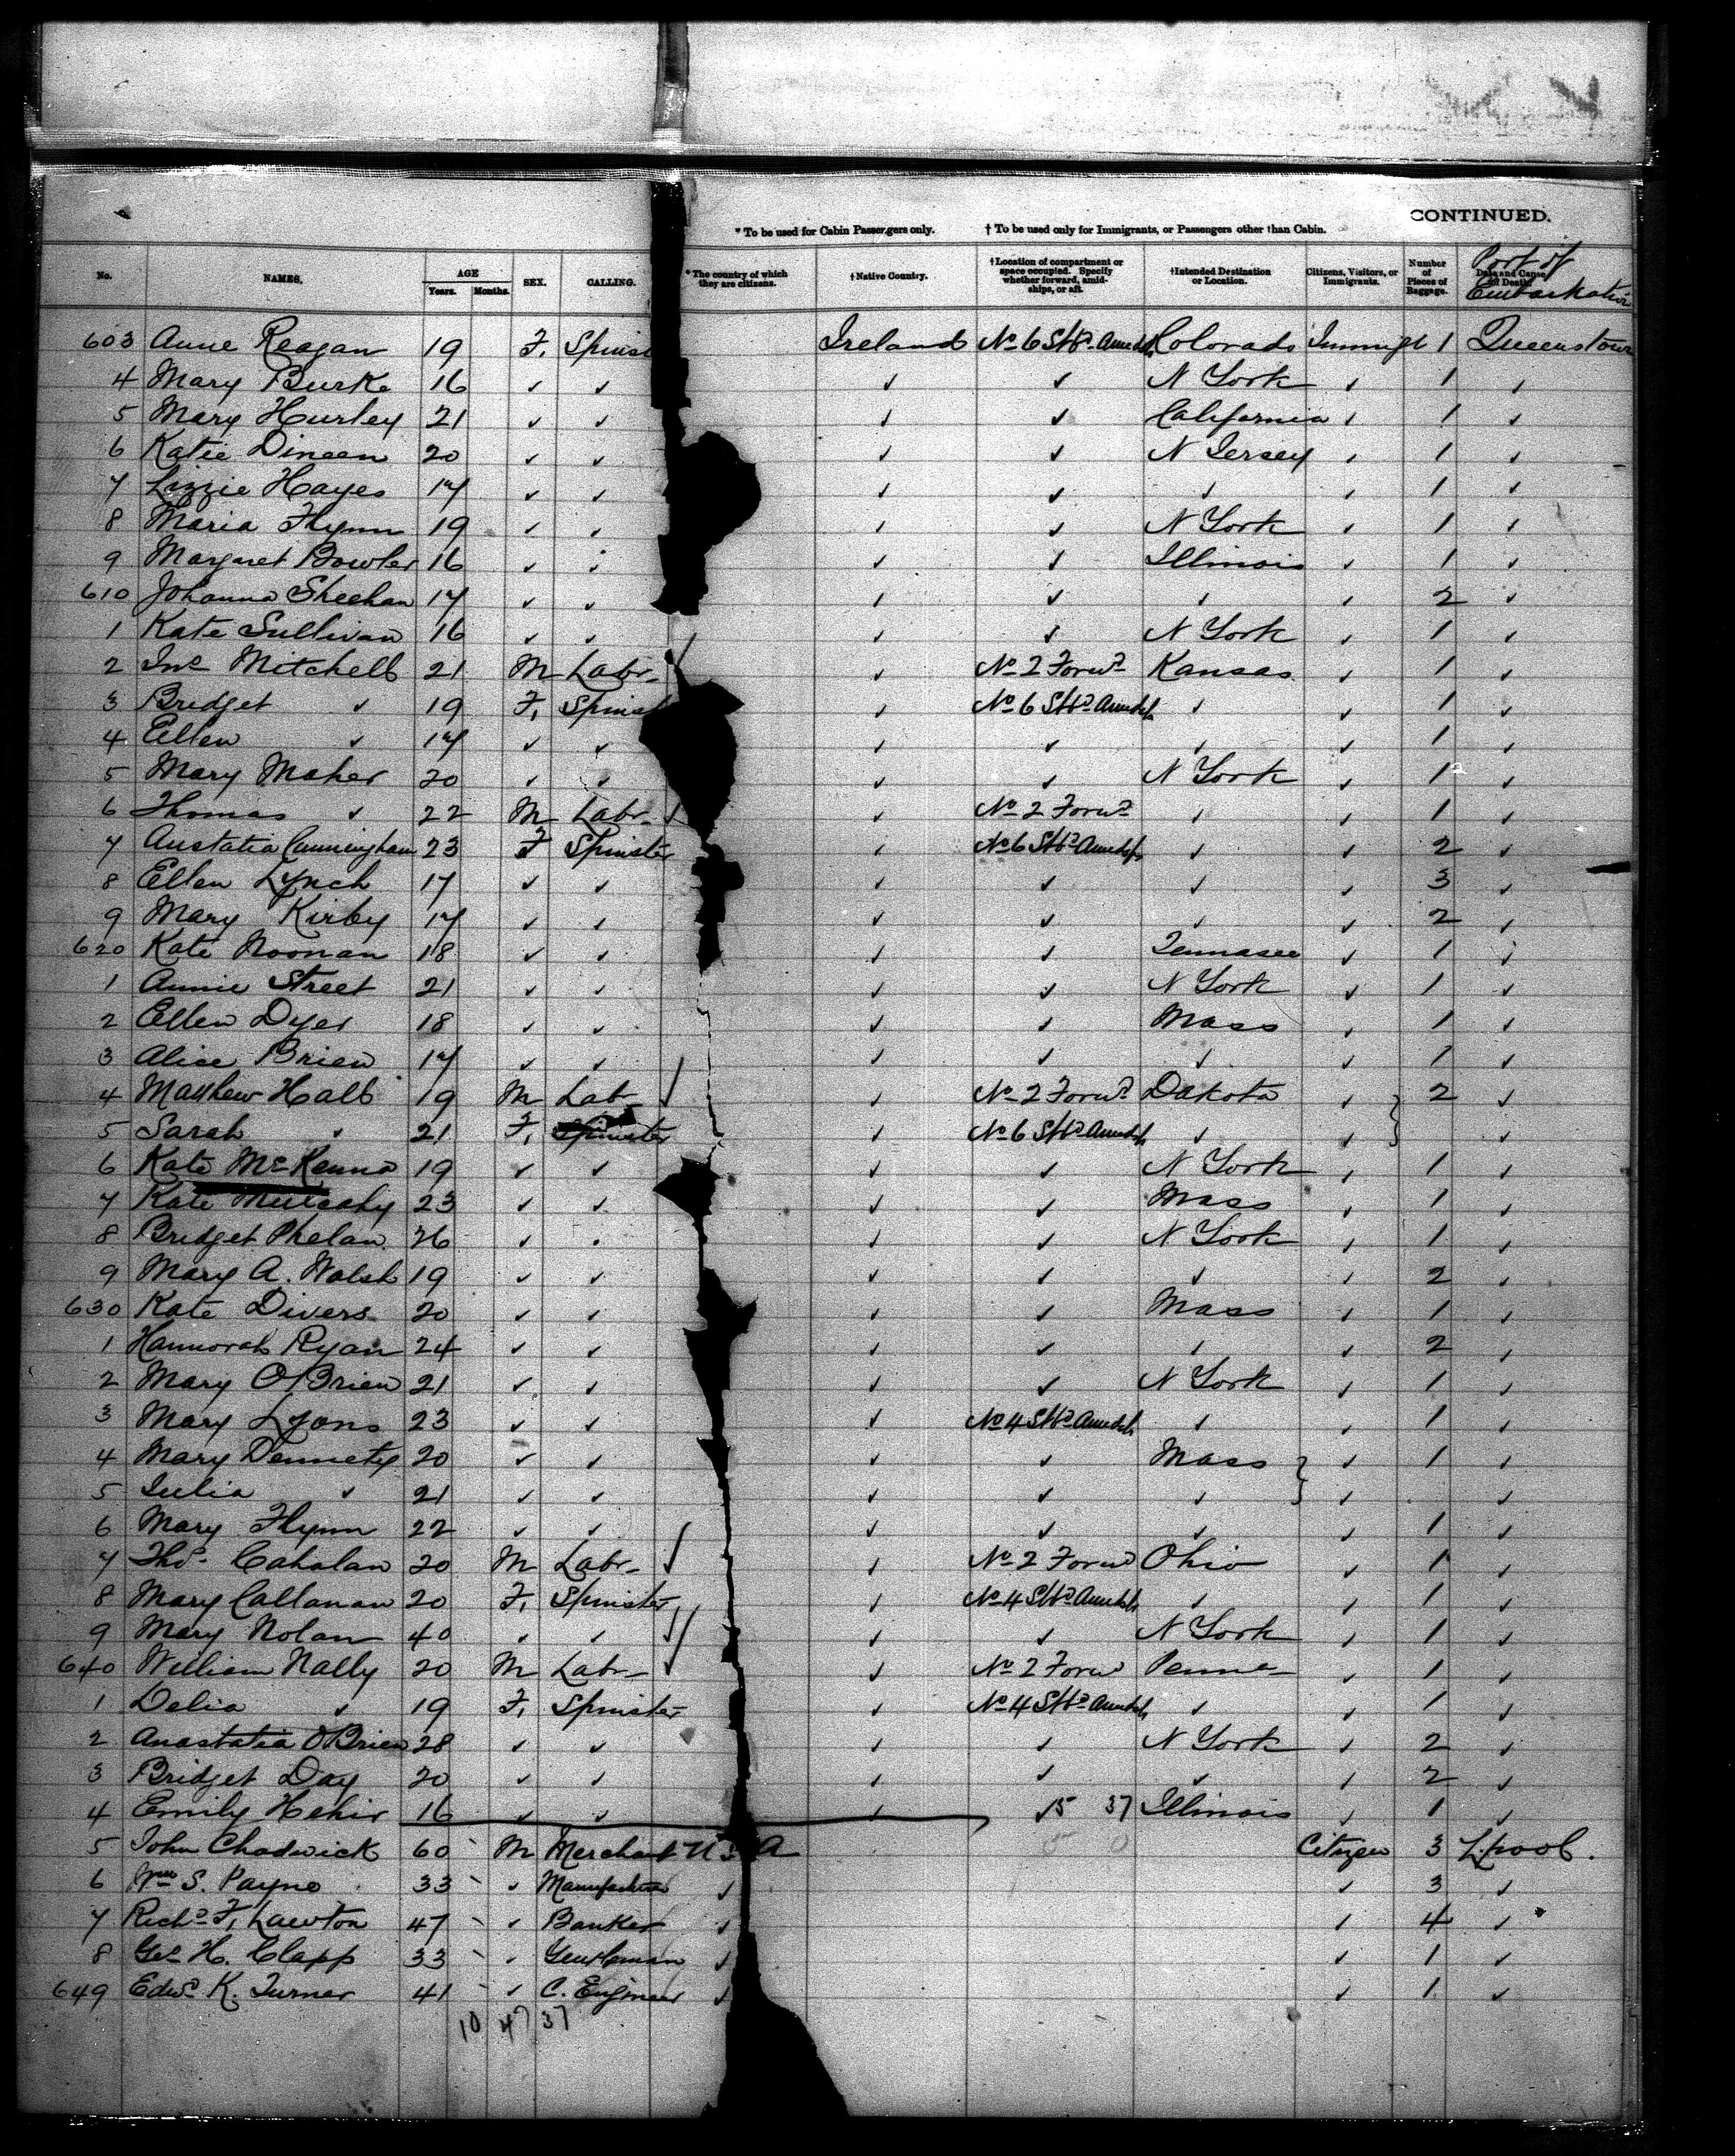 CONTINUED.
* To be used for Cabin Passengers only. † To be used only for Immigrants, or Passengers other than Cabin.
No. NAMES. AGE Years. Months. SEX. CALLING. * The country of which they are citizens. † Native Country. † Location of compartment or space occupied. Specify whether forward, amidships, or aft. † Intended Destination or Location. Citizens, Visitors, or Immigrants. Number of Pieces of Baggage. Date and Cause of Death. Port of Embarkation
603 Anne Reagan 19 F. Spinst Ireland No 6 Stbd Amidsh Colorado Immigt 1 Queenstown
4 Mary Burke 16 ✓ ✓ ✓ ✓ N York ✓ 1 ✓
5 Mary Hurley 21 ✓ ✓ ✓ ✓ California ✓ 1 ✓
6 Katie Dineen 20 ✓ ✓ ✓ ✓ N Jersey ✓ 1 ✓
7 Lizzie Hayes 17 ✓ ✓ ✓ ✓ ✓ ✓ 1 ✓
8 Maria Flynn 19 ✓ ✓ ✓ ✓ N York ✓ 1 ✓
9 Margaret Bowler 16 ✓ ✓ ✓ ✓ Illinois ✓ 1 ✓
610 Johanna Sheehan 17 ✓ ✓ ✓ ✓ ✓ ✓ 2 ✓
1 Kate Sullivan 16 ✓ ✓ ✓ ✓ N York ✓ 1 ✓
2 Jno Mitchell 21 M Labr ✓ No 2 Forwd Kansas ✓ 1 ✓
3 Bridget ✓ 19 F. Spinst ✓ No 6 Stbd Amidsh ✓ ✓ 1 ✓
4 Ellen ✓ 17 ✓ ✓ ✓ ✓ ✓ ✓ 1 ✓
5 Mary Maher 20 ✓ ✓ ✓ ✓ N York ✓ 1 ✓
6 Thomas ✓ 22 M Labr ✓ No 2 Forwd ✓ ✓ 1 ✓
7 Anstatia Cunningham 23 F Spinster ✓ No 6 Stbd Amidsh ✓ ✓ 2 ✓
8 Ellen Lynch 17 ✓ ✓ ✓ ✓ ✓ ✓ 3 ✓
9 Mary Kirby 17 ✓ ✓ ✓ ✓ ✓ ✓ 2 ✓
620 Kate Noonan 18 ✓ ✓ ✓ ✓ Tennasee ✓ 1 ✓
1 Annie Street 21 ✓ ✓ ✓ ✓ N York ✓ 1 ✓
2 Ellen Dyer 18 ✓ ✓ ✓ ✓ Mass ✓ 1 ✓
3 Alice Brien 17 ✓ ✓ ✓ ✓ ✓ ✓ 1 ✓
4 Matthew Hall 19 M Lab ✓ No 2 Forwd Dakota ✓ 2 ✓
5 Sarah ✓ 21 F. Spinster ✓ No 6 Stbd Amidsh ✓ ✓ ✓
6 Kate McKenna 19 ✓ ✓ ✓ ✓ N York ✓ 1 ✓
7 Kate Mulcahy 23 ✓ ✓ ✓ ✓ Mass ✓ 1 ✓
8 Bridget Phelan 26 ✓ ✓ ✓ ✓ N York ✓ 1 ✓
9 Mary A. Walsh 19 ✓ ✓ ✓ ✓ ✓ ✓ 2 ✓
630 Kate Divers 20 ✓ ✓ ✓ ✓ Mass ✓ 1 ✓
1 Hannorah Ryan 24 ✓ ✓ ✓ ✓ ✓ ✓ 2 ✓
2 Mary O'Brien 21 ✓ ✓ ✓ ✓ N York ✓ 1 ✓
3 Mary Lyons 23 ✓ ✓ ✓ No 4 Stbd Amidsh ✓ ✓ 1 ✓
4 Mary Dennety 20 ✓ ✓ ✓ ✓ Mass ✓ 1 ✓
5 Julia ✓ 21 ✓ ✓ ✓ ✓ ✓ ✓ ✓
6 Mary Flynn 22 ✓ ✓ ✓ ✓ ✓ ✓ 1 ✓
7 Thos Cahalan 20 M Labr ✓ No 2 Forwd Ohio ✓ 1 ✓
8 Mary Callanan 20 F. Spinster ✓ No 4 Stbd Amidsh ✓ ✓ 1 ✓
9 Mary Nolan 40 ✓ ✓ ✓ ✓ N York ✓ 1 ✓
640 William Nally 20 M Labr ✓ No 2 Forwd Penna ✓ 1 ✓
1 Delia ✓ 19 F. Spinster ✓ No 4 Stbd Amidsh ✓ ✓ 1 ✓
2 Anastatia O'Brien 28 ✓ ✓ ✓ ✓ N York ✓ 2 ✓
3 Bridget Day 20 ✓ ✓ ✓ ✓ ✓ ✓ 2 ✓
4 Emily Hehir 16 ✓ ✓ ✓ ✓ 15 37 Illinois ✓ 1 ✓
5 John Chadwick 60 M Merchant U S A Citizen 3 L'pool.
6 Wm S. Payne 33 ✓ Manufacturer ✓ ✓ 3 ✓
7 Richd F. Lawton 47 ✓ Banker ✓ ✓ 4 ✓
8 Geo H. Clapp 33 ✓ Gentleman ✓ ✓ 1 ✓
649 Edwd K. Turner 41 ✓ C. Engineer ✓ ✓ 1 ✓
10 47 37